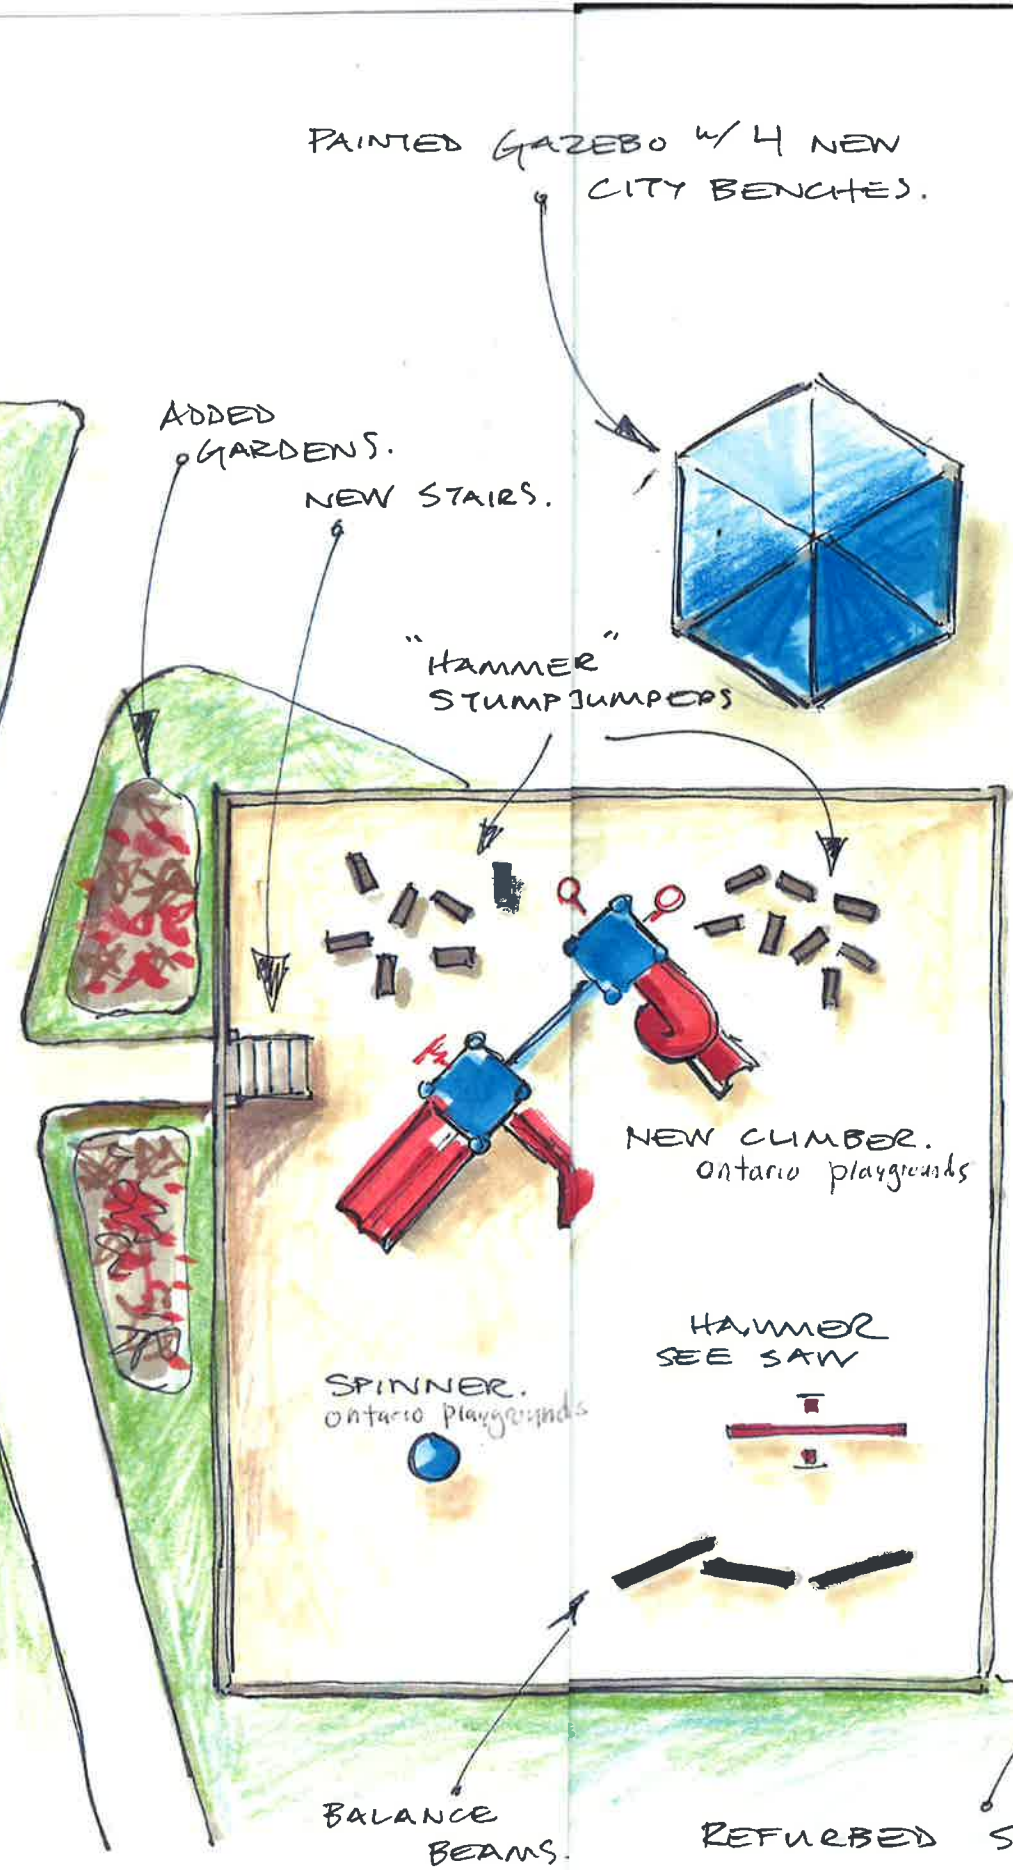 PAINTED GAZEBO w/ 4 NEW
CITY BENCHES.
ADDED
GARDENS.
NEW STAIRS.
"HAMMER"
STUMPJUMPERS
NEW CLIMBER.
ontario playgrounds
HAMMER
SEE SAW
SPINNER.
ontario playgrounds
BALANCE
BEAMS.
REFURBED S